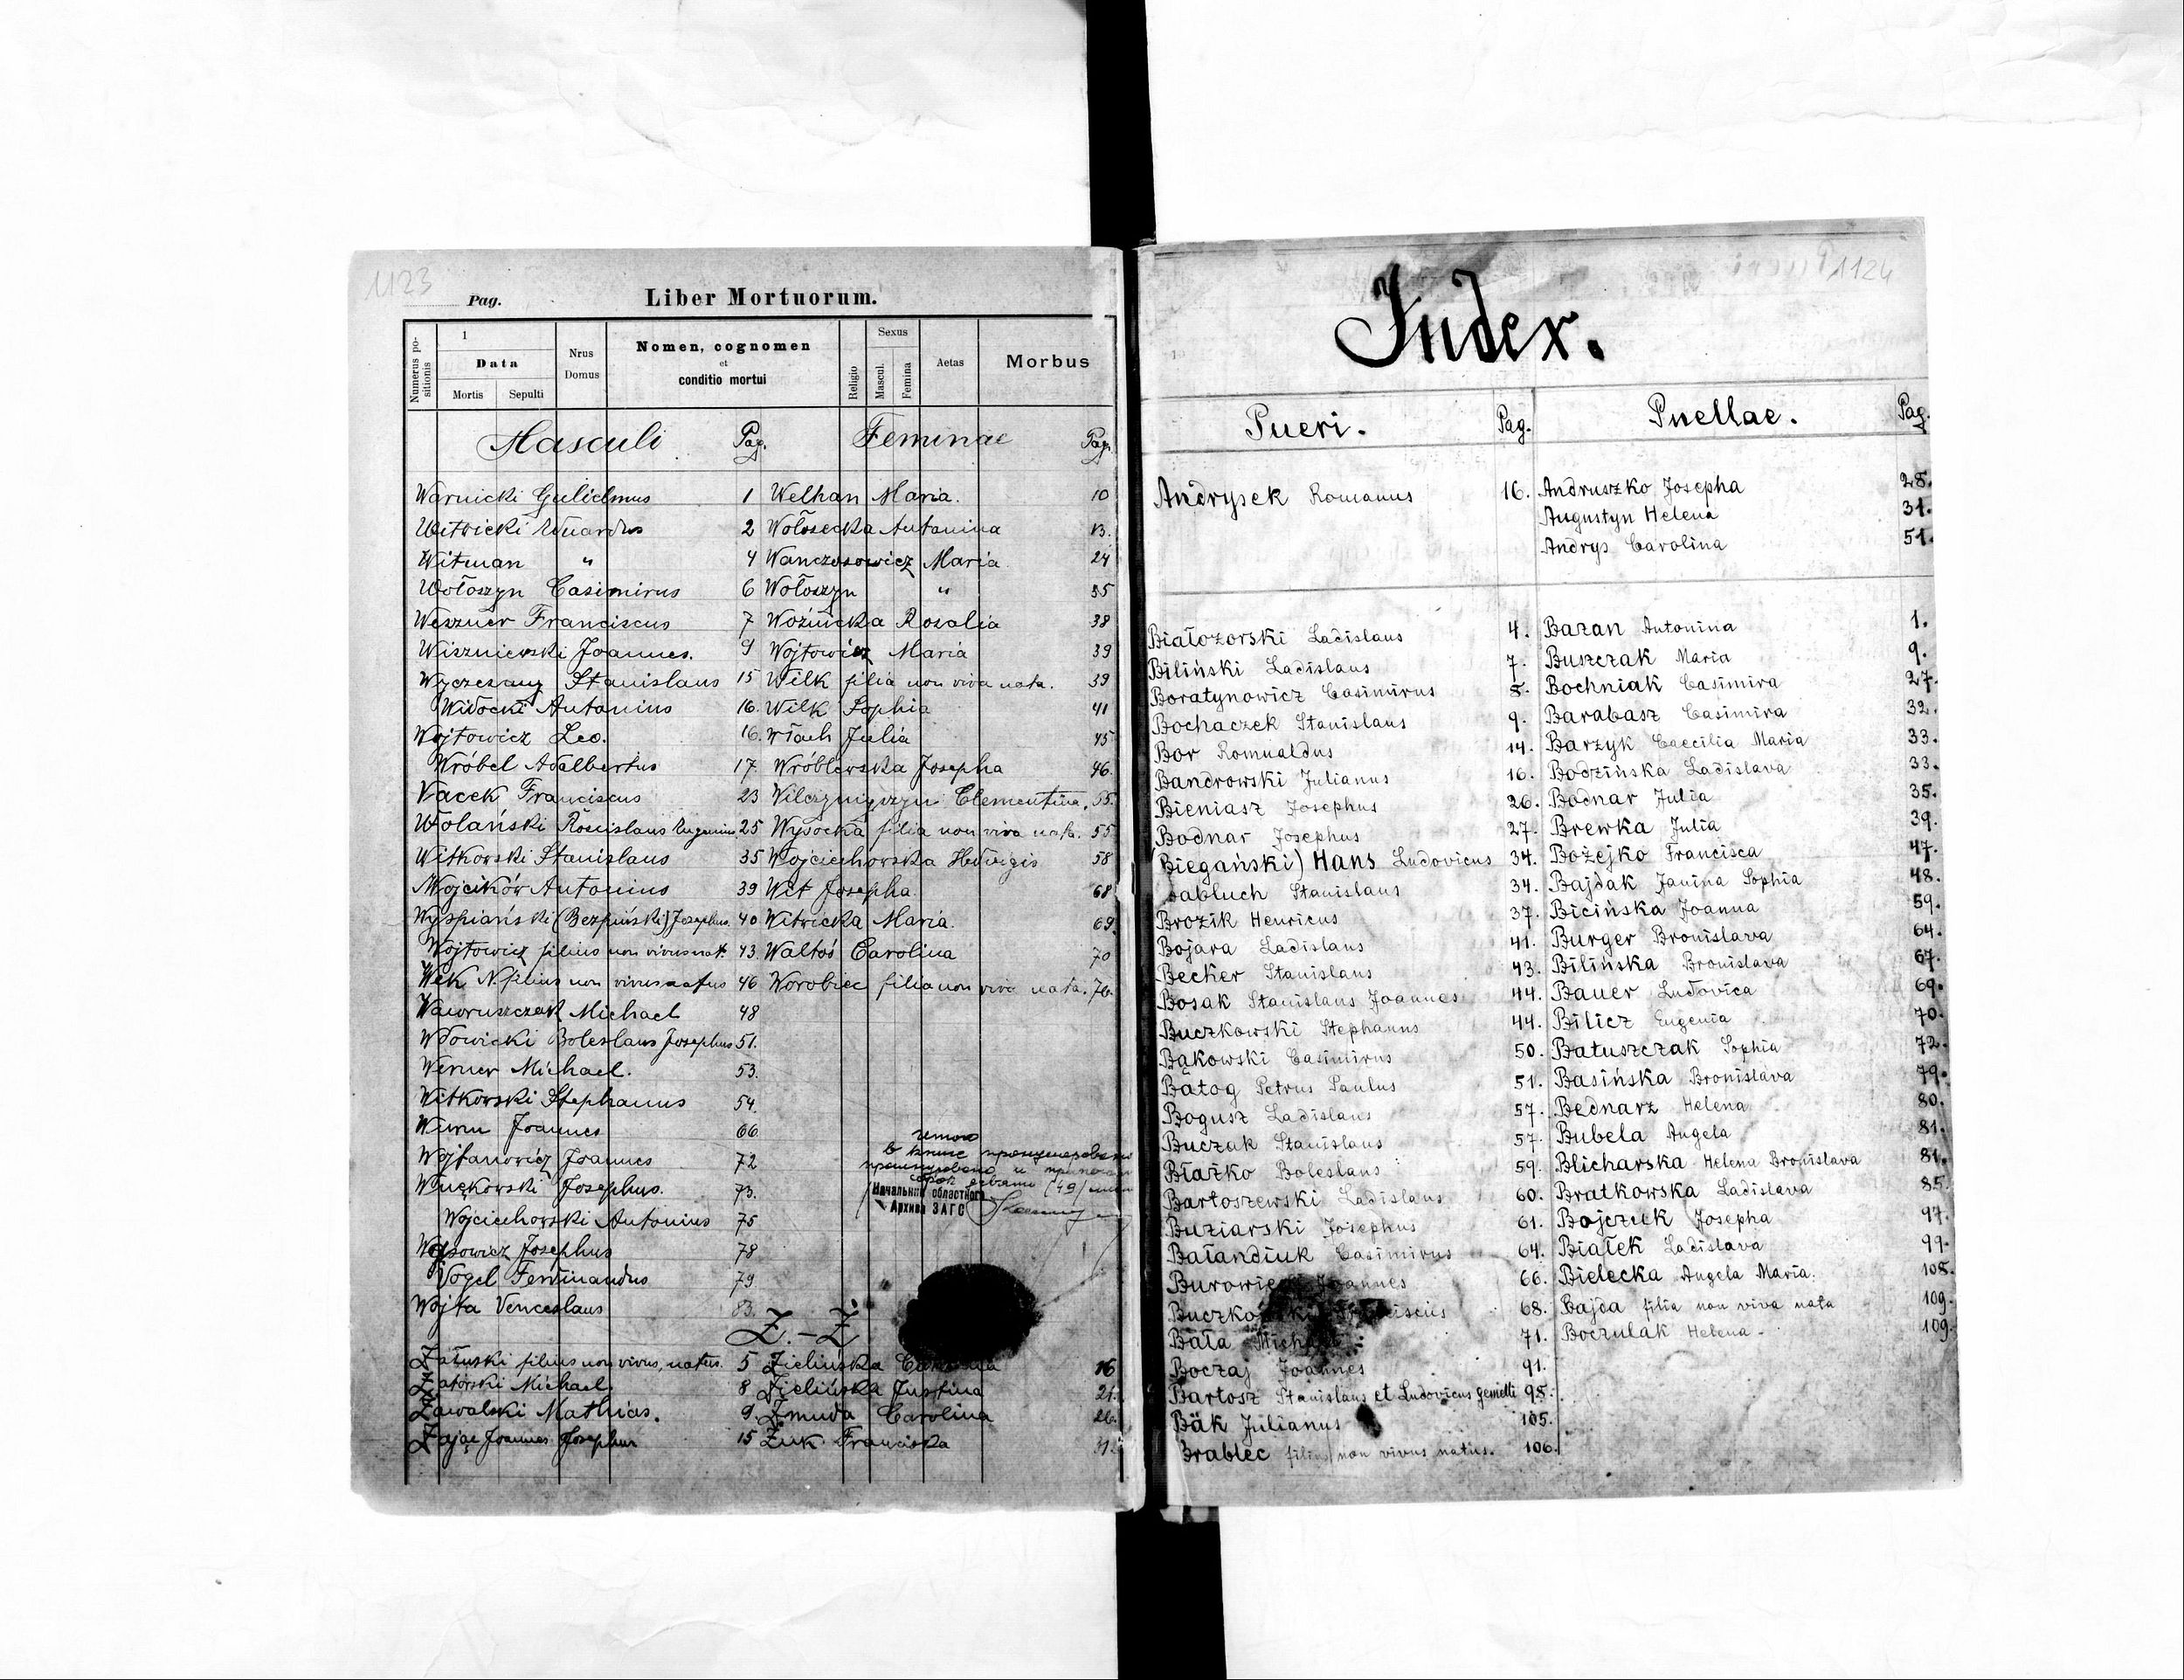 1123
Pag.
Liber Mortuorum.
Numerus positionis
1
Data
Mortis
Sepulti
Nrus Domus
Nomen, cognomen
et
conditio mortui
Religio
Sexus
Mascul.
Femina
Aetas
Morbus
Masculi Pag. Feminae Pag.
Warnicki Gulielmus 1 Welhan Maria. 10
Witwicki Eduardus 2 Wołosecka Antonina 13.
Witman " 4 Maria 24
Wołoszyn Casimirus 6 Wołoszyn " 35
Weszner Franciscus 7 Woźnicka Rosalia 38
Wiszniewski Joannes. 9 Wojtowicz Maria 39
Wyczesany Stanislaus 15 Wilk filia non viva nata. 39
Widocki Antonius 16. Wilk Sophia 41
Wojtowicz Leo. 16. Włach Julia 45
Wróbel Adalbertus 17. Wróblewska Josepha 46.
Vacek Franciscus 23 Clementina. 55.
Wolański Eugenius 25 Wysocka filia non viva nata. 55
Witkowski Stanislaus 35 Wojciechowska Hedvigis 58
Wojcików Antonius 39 Wit Josepha 68
Wyspiański (Bezpiński) Josephus. 40 Witwicka Maria. 69
Wojtowicz filius non vivus nat. 43. Waltoś Carolina 70
Wek N. filius non vivus natus 46 Worobiec filia non viva nata. 76.
Waworuszczak Michael 48
Wdowicki Boleslaus Josephus 51.
Werner Michael. 53.
Witkowski Stephanus 54.
Joannes 66
Wojtanowicz Joannes 72
Josephus. 73.
Wojciechowski Antonius 75
Josephus 78
Vogel Ferdinandus 79
Wojta Venceslaus 83.
Начальник областного
Архива ЗАГС
Z.-Ż
Załuski filius non vivus, natus. 5 Zielińska 16
Zatorski Michael 8 Zielińska Justina 21.
Zawalski Mathias. 9. Żmuda Carolina 26.
Zając Joannes Josephus 15 Żuk Franciska
1124
Index.
Pueri. Pag. Puellae. Pag.
Andrysek Romanus 16. Andruszko Josepha 28.
Augustyn Helena 31.
Andrys Carolina 51.
Białozorski Ladislaus 4. Baran Antonina 1.
Biliński Ladislaus 7. Buszczak Maria 9.
Boratynowicz Casimirus 8. Bochniak Casimira 27.
Bochaczek Stanislaus 9. Barabasz Casimira 32.
Bor Romualdus 14. Barzyk Caecilia Maria 33.
Bandrowski Julianus 16. Bodzińska Ladislava 33.
Bieniasz Josephus 26. Bodnar Julia 35.
Bodnar Josephus 27. Brewka Julia 39.
(Biegański) Hans Ludovicus 34. Bożejko Francisca 47.
Babluch Stanislaus 34. Bajdak Janina Sophia 48.
Brozik Henricus 37. Bicińska Joanna 59.
Bojara Ladislaus 41. Burger Bronislava 64.
Becker Stanislaus 43. Bilińska Bronislava 67.
Bosak Stanislaus Joannes 44. Bauer Ludovica 69.
Buczkowski Stephanus 44. Bilicz Eugenia 70.
Bąkowski Casimirus 50. Batuszczak Sophia 72.
Batog Petrus Paulus 51. Basińska Bronislava 79.
Bogusz Ladislaus 57. Bednarz Helena 80.
Buczak Stanislaus 57. Bubela Angela 81.
Błażko Boleslaus 59. Blicharska Helena Bronislava 81.
Bartoszewski Ladislaus 60. Bratkowska Ladislava 85.
Buziarski Josephus 61. Bojczuk Josepha 97.
Bałandiuk Casimirus 64. Białek Ladislava 99.
Burowiecki Joannes 66. Bielecka Angela Maria. 108.
68. Bajda filia non viva nata 109.
Bała Michael 71. Boczulak Helena. 109.
Boczaj Joannes 91.
Bartosz Stanislaus et Ludovicus gemelli 98.
Bäk Julianus 105.
Brablec filius non vivus natus. 106.